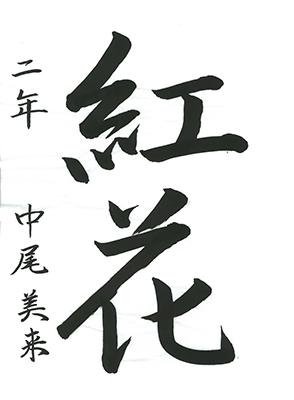 紅花
二年 中尾美来